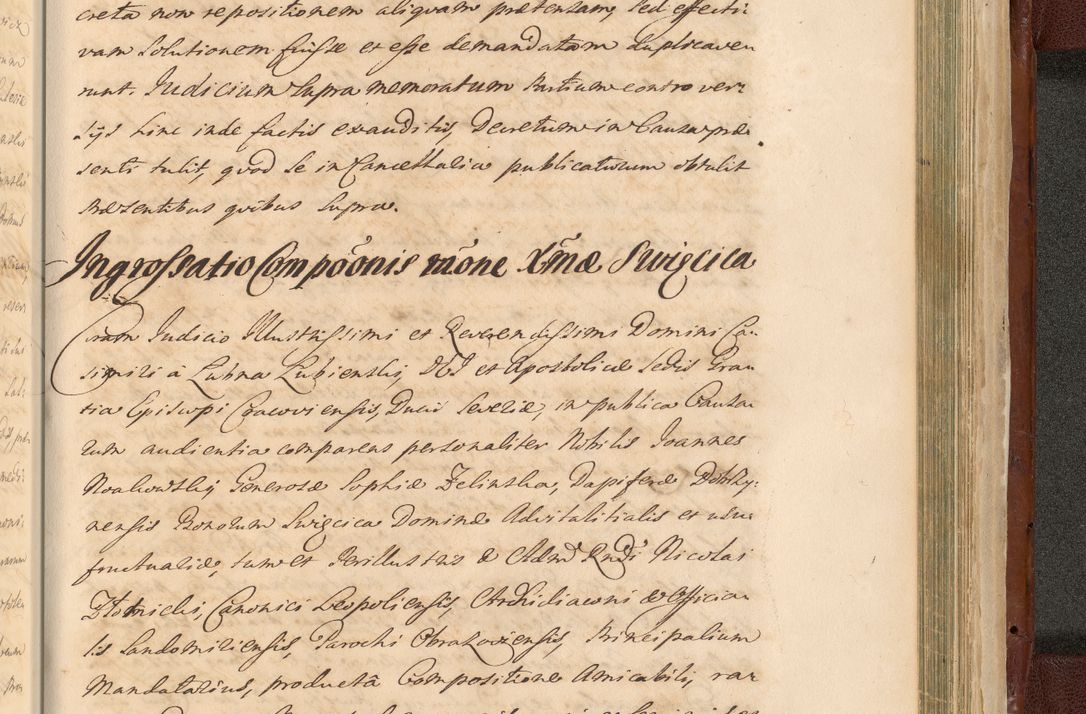 creta non repositionem aliquam prætensam, sed effecti:
vam Solutionem fuisse et esse demandatam Duplicave
runt. Judicium Supra memoratum Partium contro ver:
sijs hinc inde factis exauditis, Decretum in Causa præ
senti tulit, quod Se in Cancellaria publicaturum obtulit
Præsentibus quibus Supra.
Ingrossatio Compõõnis rãõne Xmæ Swięcica
Coram Judicio Illustrissimi et Reverendissimi Domini Ca:
simiri à Lubna Lubienski, DEI et Apostolicæ Sedis Gra
tia Episcopi Cracoviensis, Ducis Severiæ, in publica Causa
rum audientia comparens personaliter Nobilis Joannes
Noakowskij Generosæ Sophiæ Zelinska, Dapiferæ Dobrzy:
nensis Bonorum Swięcica Dominæ Advitalitialis et usu
fructuariæ, tum et Perillustris & Adm Rndi Nicolai
Złotnicki, Canonici Leopoliensis, Archidiaconi & Officia
lis Sandomiriensis, Parochi Obrazoviensis, Principalium
Mandatarius, productâ Compositione Amicabili, ra